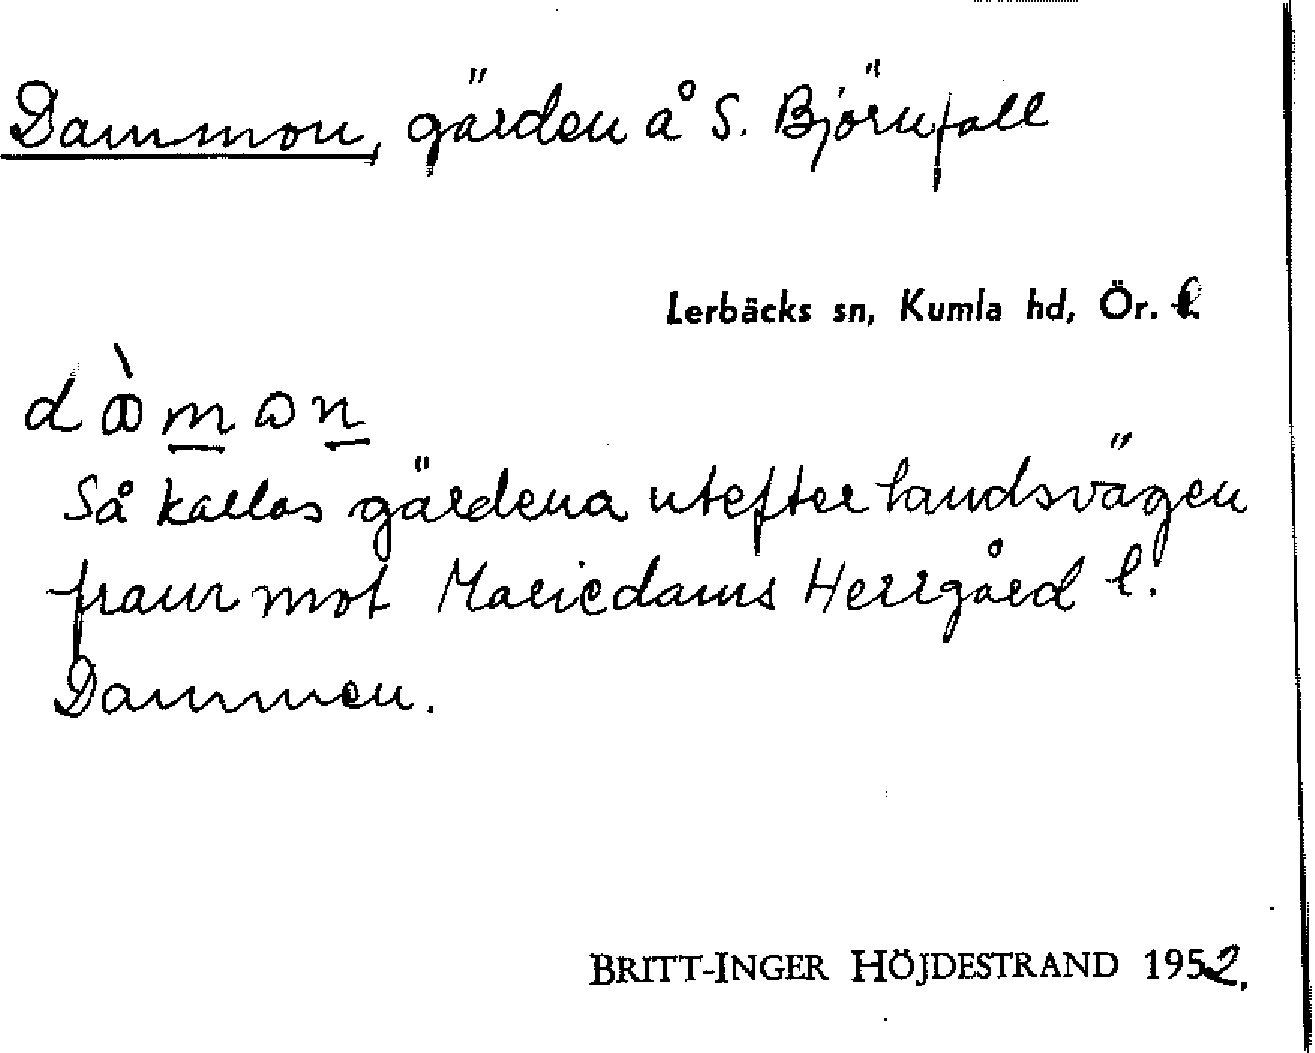 Dammon, gärden å S. Björnfall
Lerbäcks sn, Kumla hd, Ör. l.
Så kallas gärdena utefter landsvägen
fram mot Mariedams Herrgård l.
Dammen.
BRITT-INGER HÖJDESTRAND 1952.